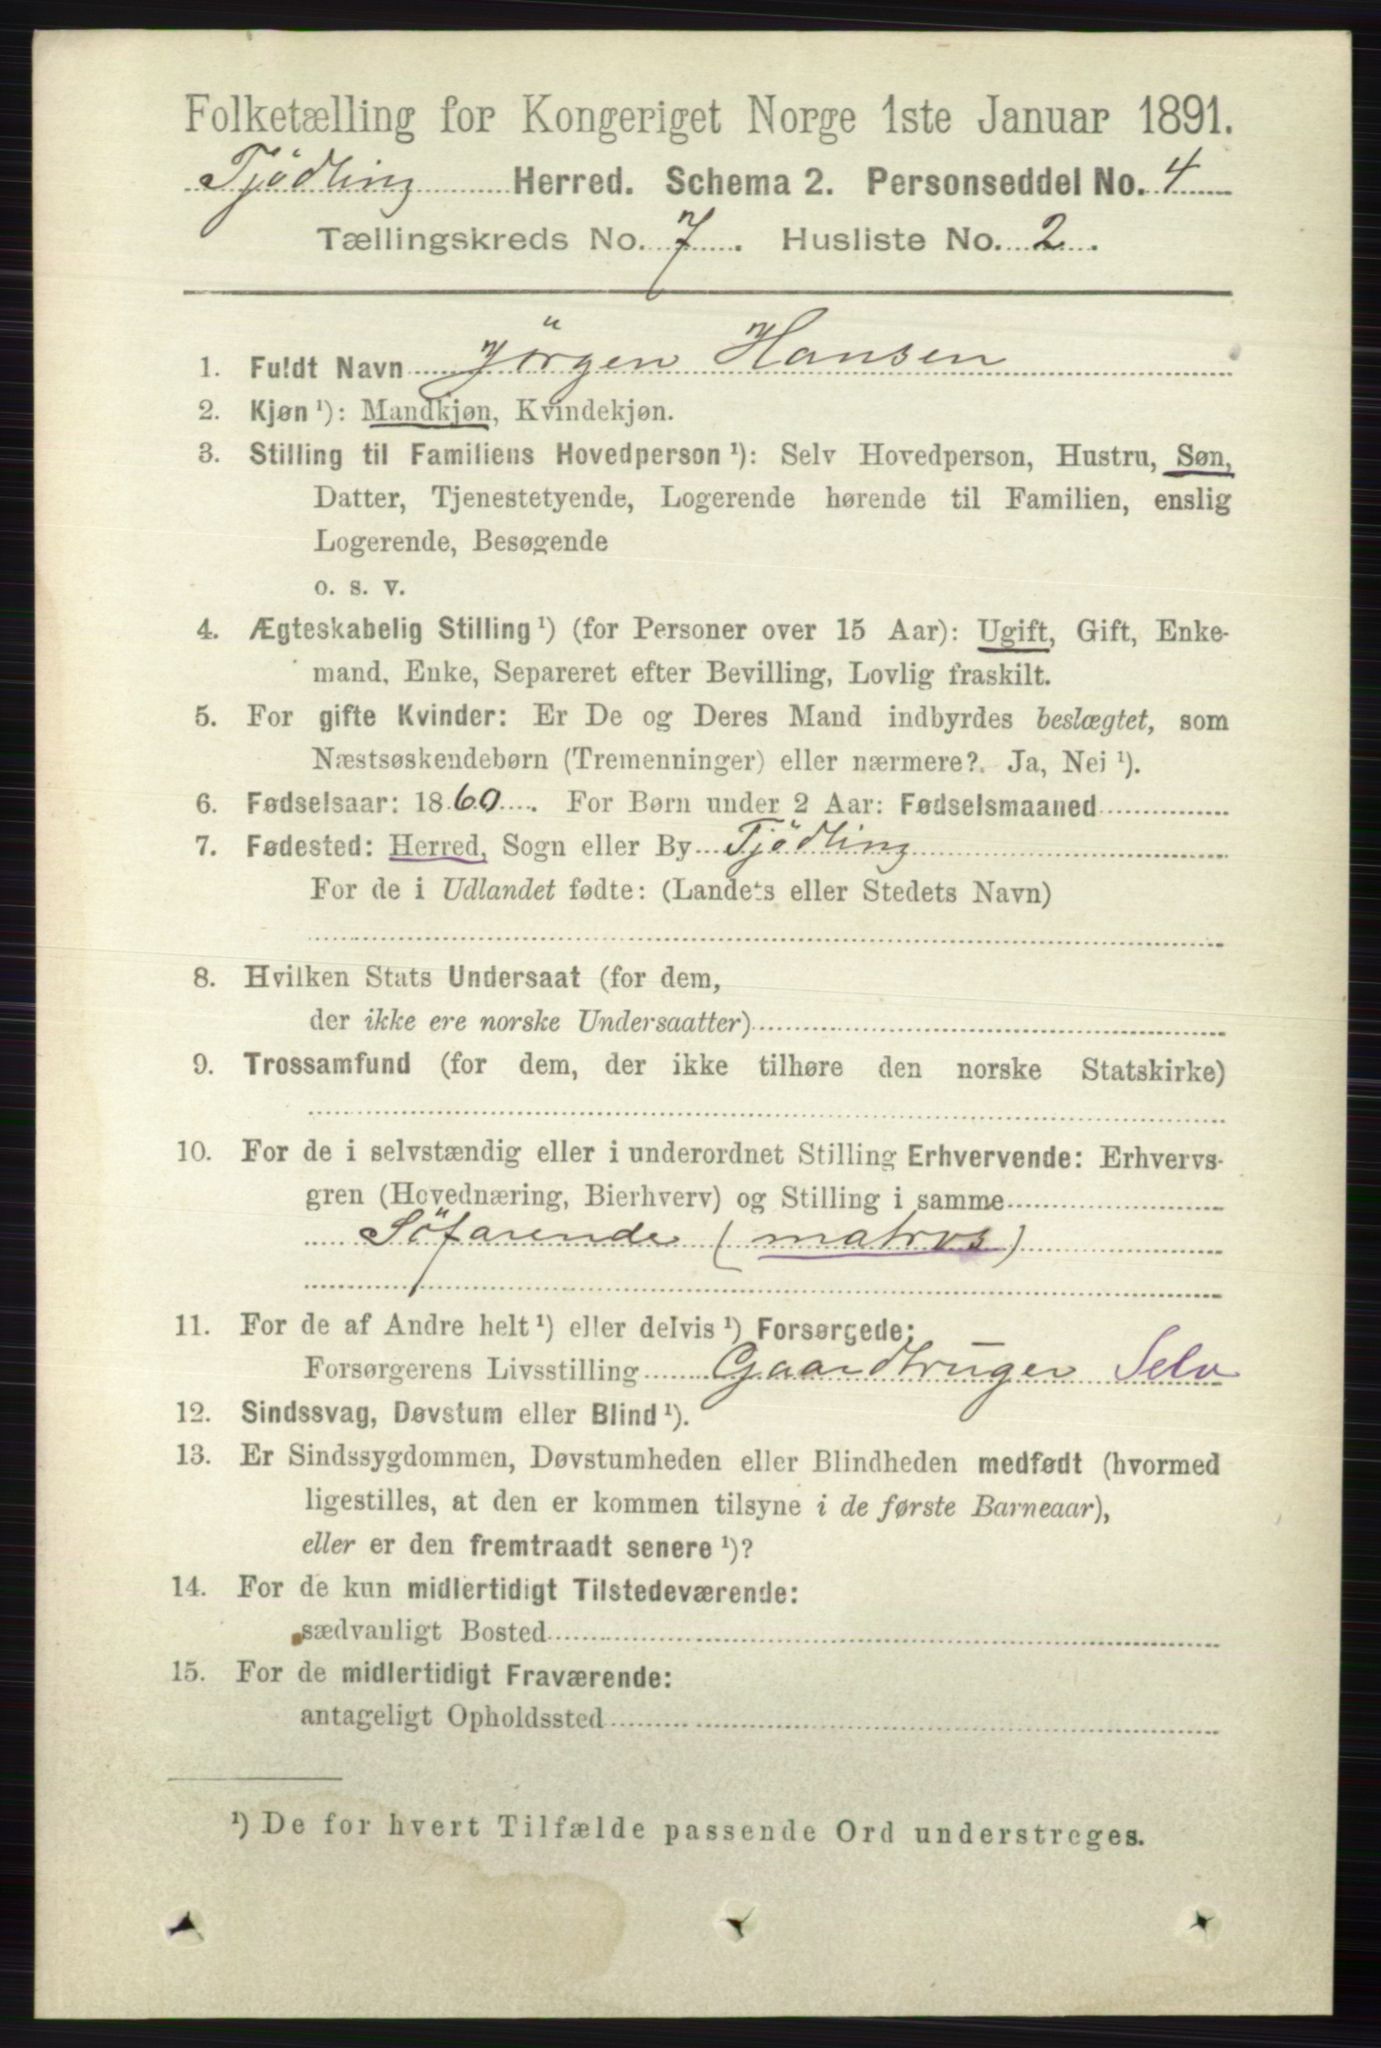 Folketælling for Kongeriget Norge 1ste Januar 1891.
Tjödling Herred. Schema 2. Personseddel No. 4
Tællingskreds No. 7. Husliste No. 2.
1. Fuldt Navn Jörgen Hansen
2. Kjøn ¹): Mandkjøn, Kvindekjøn.
3. Stilling til Familiens Hovedperson ¹): Selv Hovedperson, Hustru, Søn,
Datter, Tjenestetyende, Logerende hørende til Familien, enslig
Logerende, Besøgende
o. s. v.
4. Ægteskabelig Stilling ¹) (for Personer over 15 Aar): Ugift, Gift, Enke-
mand, Enke, Separeret efter Bevilling, Lovlig fraskilt.
5. For gifte Kvinder: Er De og Deres Mand indbyrdes beslægtet, som
Næstsøskendebørn (Tremenninger) eller nærmere?. Ja, Nei ¹).
6. Fødselsaar: 1860. For Børn under 2 Aar: Fødselsmaaned
7. Fødested: Herred, Sogn eller By Tjödling
For de i Udlandet fødte: (Landets eller Stedets Navn)
8. Hvilken Stats Undersaat (for dem,
der ikke ere norske Undersaatter)
9. Trossamfund (for dem, der ikke tilhøre den norske Statskirke)
10. For de i selvstændig eller i underordnet Stilling Erhvervende: Erhvervs-
gren (Hovednæring, Bierhverv) og Stilling i samme
Söfarende (matros)
11. For de af Andre helt ¹) eller delvis ¹) Forsørgede:
Forsørgerens Livsstilling Gaardbruger Selv
12. Sindssvag, Døvstum eller Blind ¹).
13. Er Sindssygdommen, Døvstumheden eller Blindheden medfødt (hvormed
ligestilles, at den er kommen tilsyne i de første Barneaar),
eller er den fremtraadt senere ¹)?
14. For de kun midlertidigt Tilstedeværende:
sædvanligt Bosted
15. For de midlertidigt Fraværende:
antageligt Opholdssted
¹) De for hvert Tilfælde passende Ord understreges.